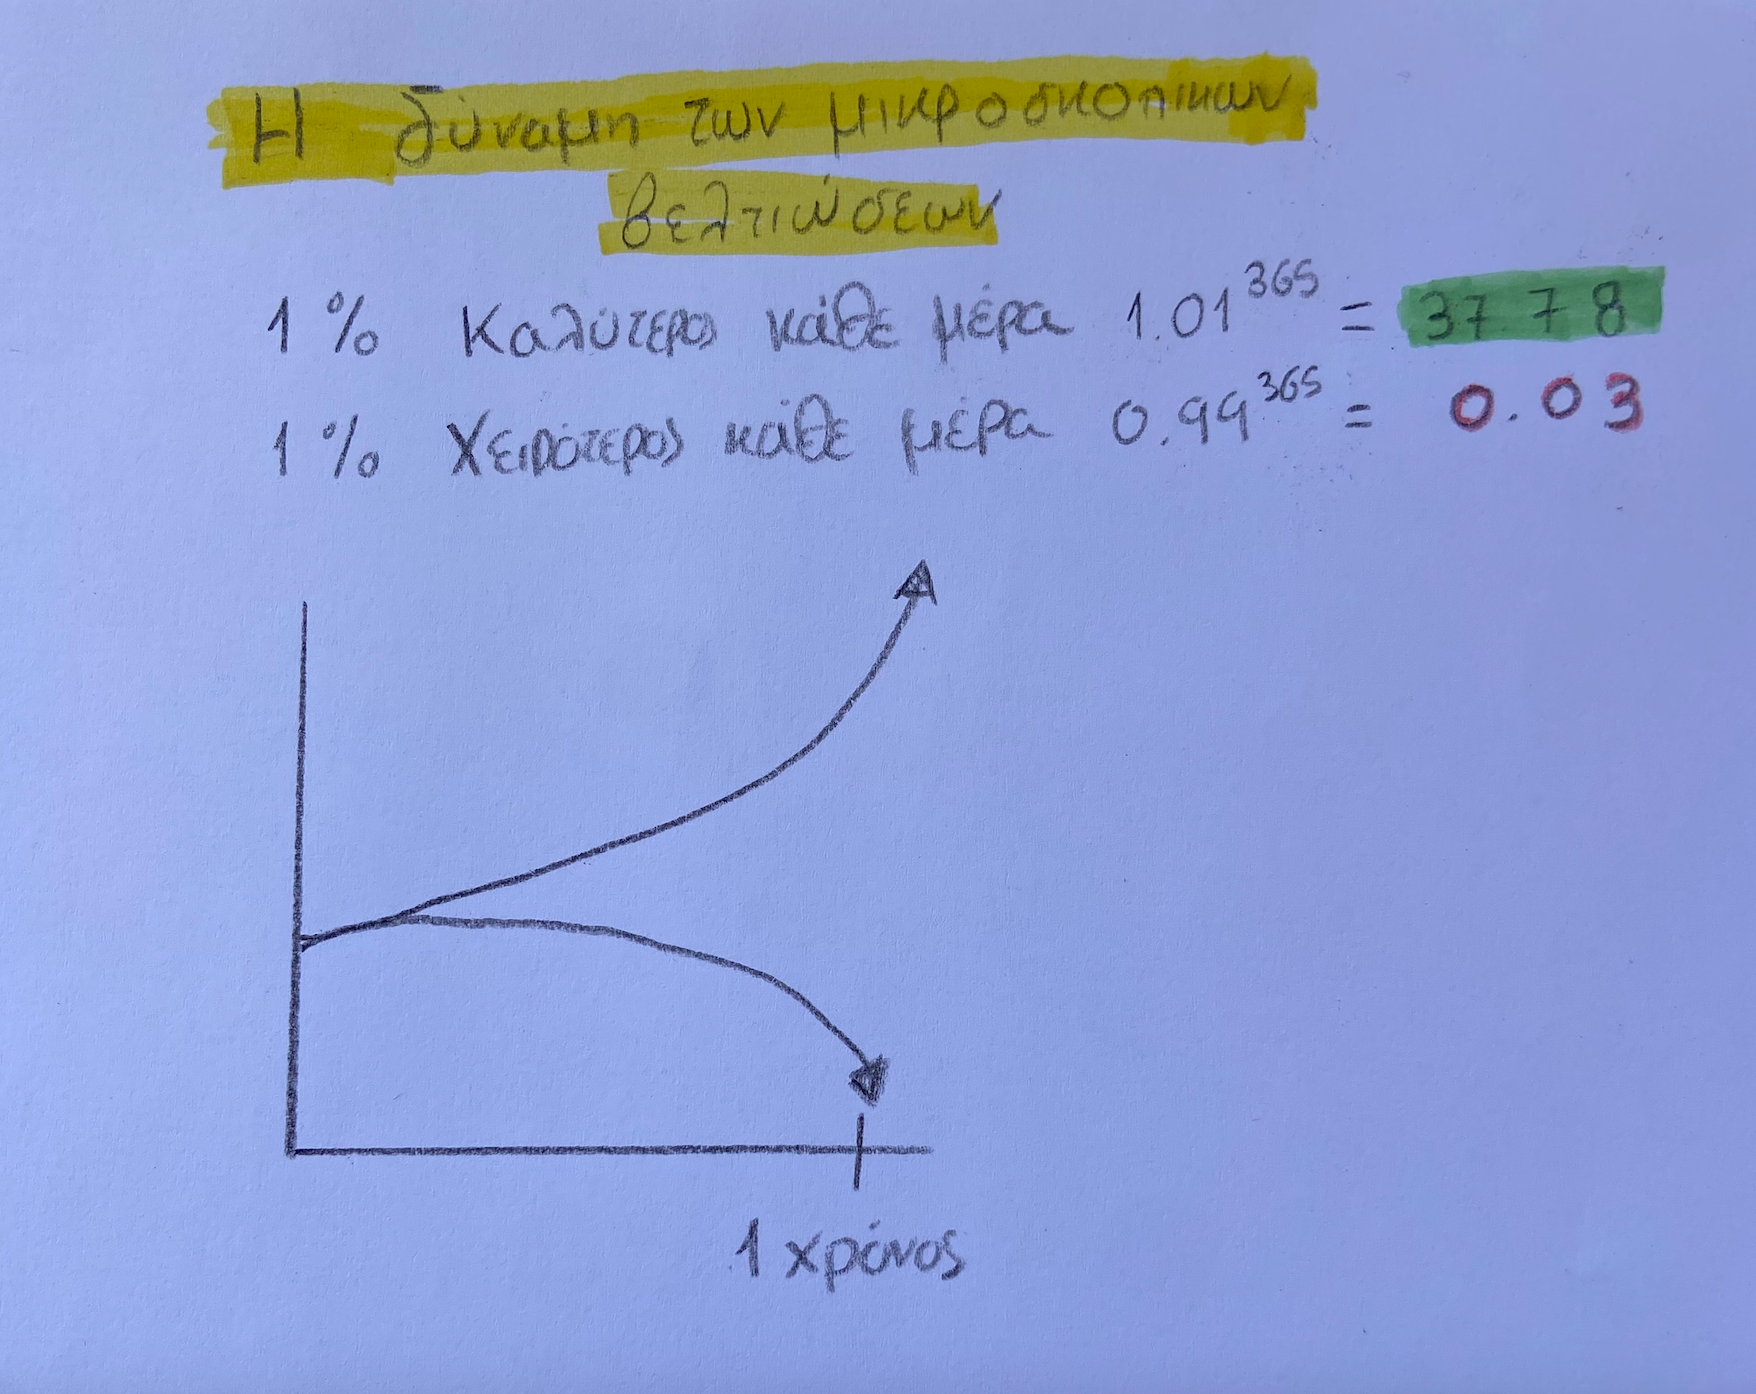 Η δύναμη των μικροσκοπικων
βελτιώσεων
1 % Καλύτερος κάθε μέρα 1.01^365 = 37.78
1 % Χειρότερος κάθε μέρα 0.99^365 = 0.03
1 χρόνος